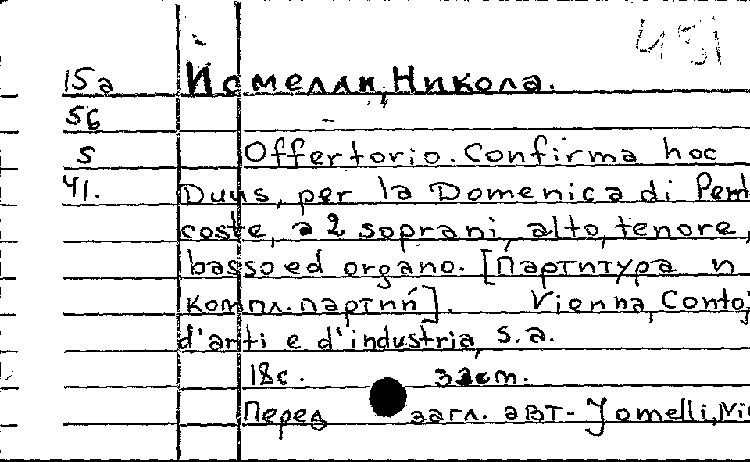 451
15а Йомелли, Никола.
56
5 Offertorio. Confirma hoc
41. Duys, per la Domenica di Pent
coste, a 2 soprani, alto, tenore,
basso ed organo. [Партитура и
компл. партий]. Vienna, Conto
d'arti e d'industria, s.a.
18с. 32см.
Перед загл. авт- Jomelli, Ni